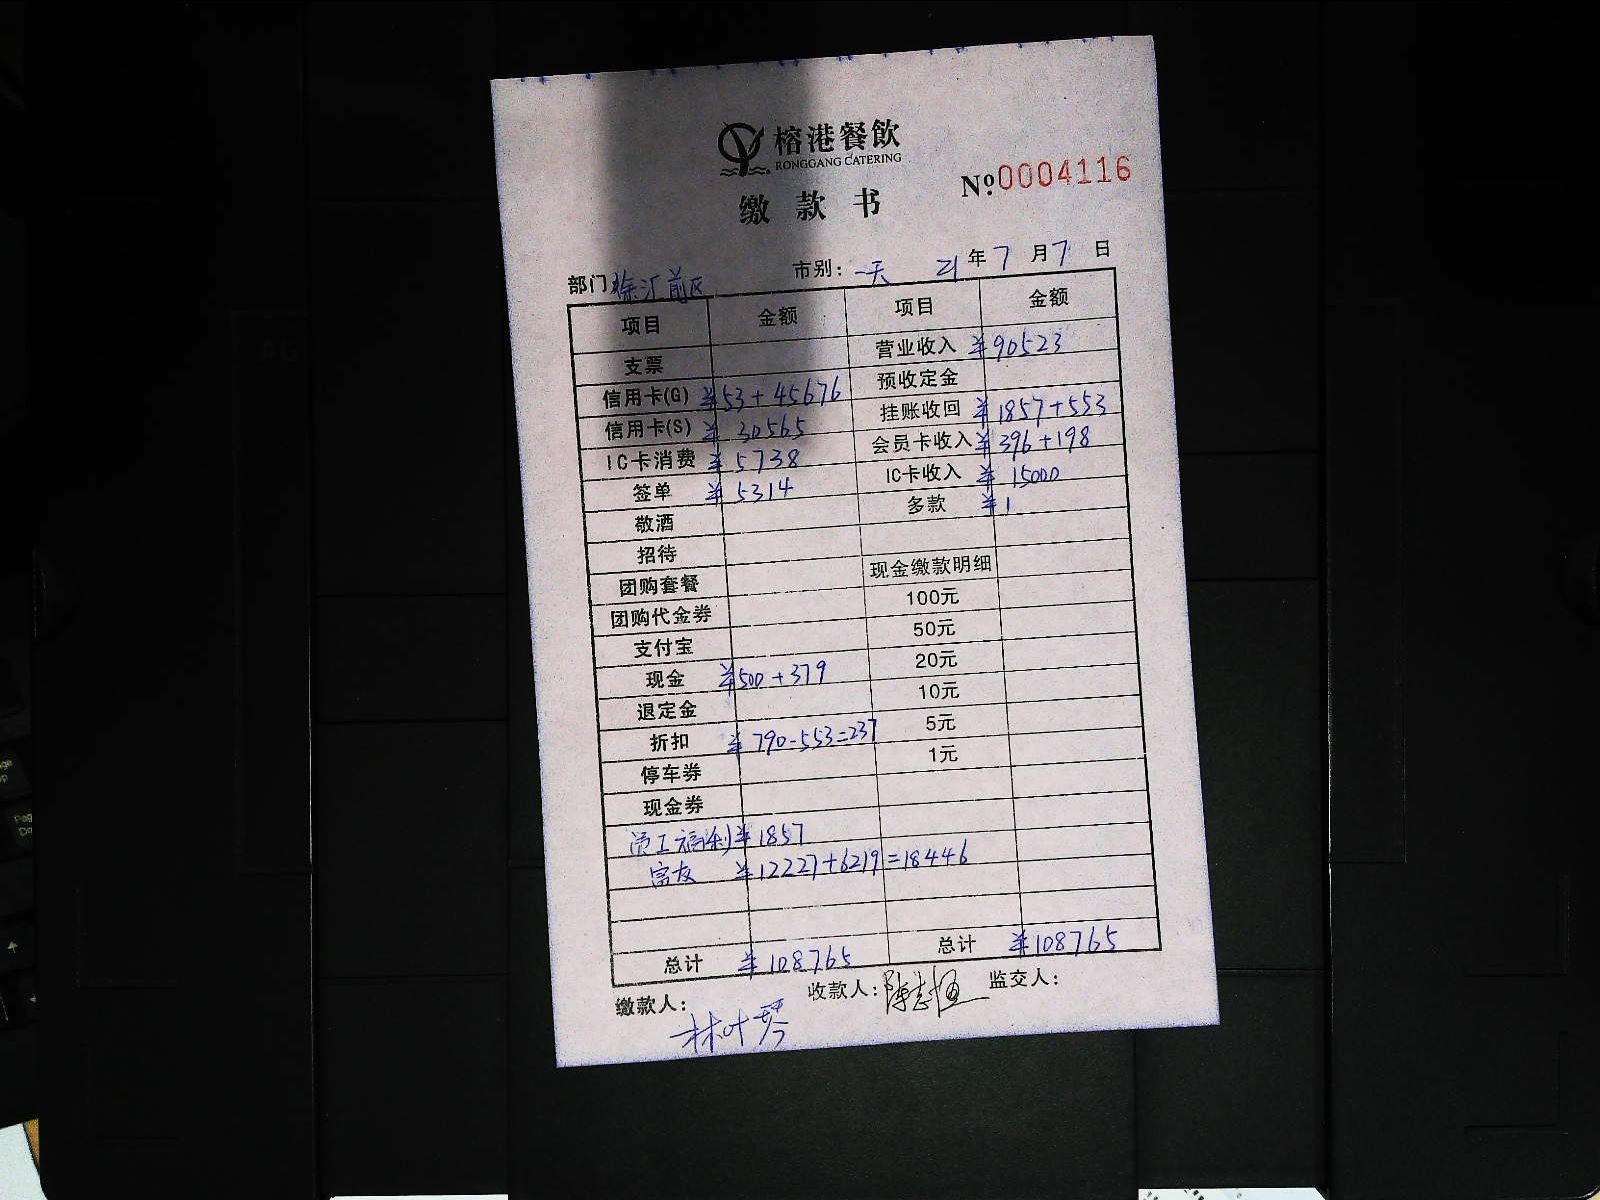 榕港餐飲
RONGGANG CATERING
缴款书
№0004116
部门 徐汇前区 市别: 一天 21年7月7日
项目 金额 项目 金额
支票 营业收入 ¥90523
信用卡(G) ¥53+45676 预收定金
信用卡(S) ¥30565 挂账收回 ¥1857+553
IC卡消费 ¥5738 会员卡收入 ¥396+198
签单 ¥5314 IC卡收入 ¥15000
敬酒 多款 ¥1
招待
团购套餐 现金缴款明细
团购代金券 100元
支付宝 50元
现金 ¥500+379 20元
退定金 10元
折扣 ¥790-553=237 5元
停车券 1元
现金券
员工福利 ¥1857
富友 ¥12227+6219=18446
总计 ¥108765 总计 ¥108765
缴款人: 林叶琴 收款人: 陈志恒 监交人: